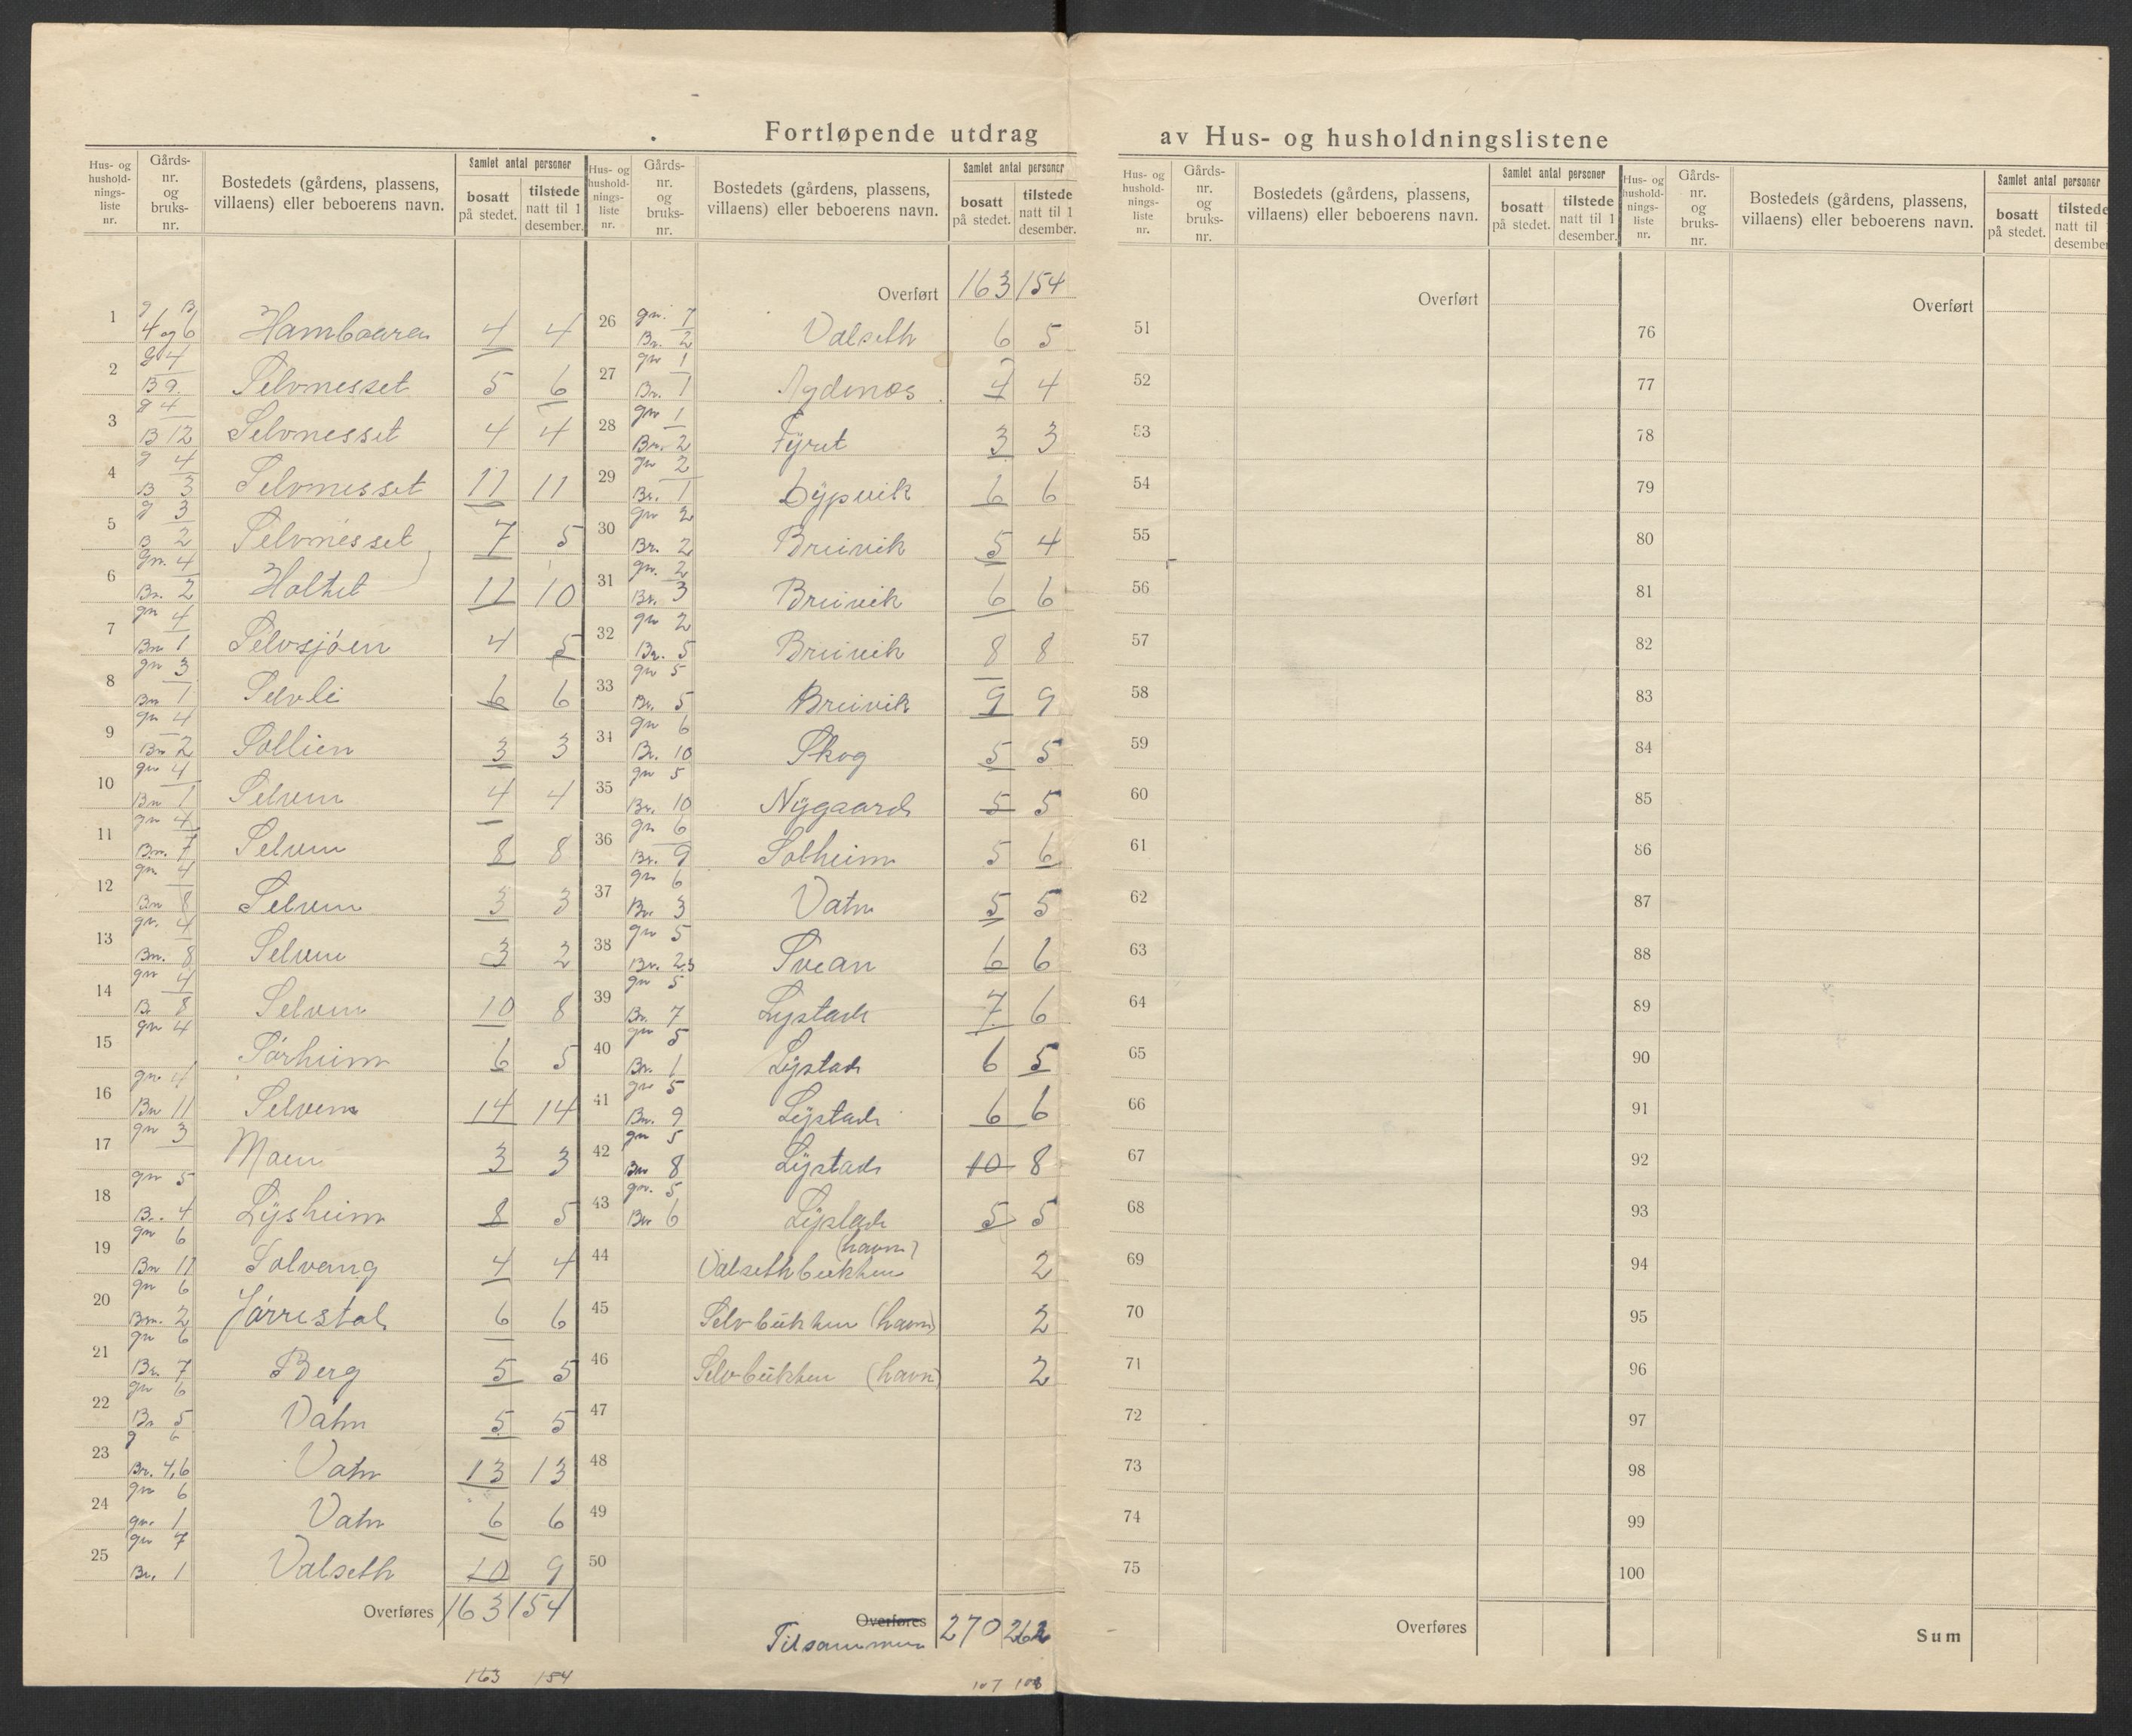 Fortløpende utdrag av Hus- og husholdningslistene
Hus- og hushold-nings-liste nr. | Gårds-nr. og bruks-nr. | Bostedets (gårdens, plassens, villaens) eller beboerens navn. | Samlet antal personer | bosatt på stedet. | tilstede natt til 1 desember.
1 | g 4 og B 6 | Hambaara | 4 | 4
2 | g 4 B 9. | Selvnesset | 5 | 6
3 | g 4 B 12 | Selvnesset | 4 | 4
4 | g 4 B 3 | Selvnesset | 11 | 11
5 | g 3 B 2 | Selvnesset | 7 | 5
6 | Gn. 4 Bn. 2 | Haltet | 11 | 10
7 | gn 4 Bn 1 | Selvsjøen | 4 | 5
8 | gn 3 Bn 1 | Selvli | 6 | 6
9 | gn 4 Bn 2 | Sollien | 3 | 3
10 | gn 4 Bn 1 | Selven | 4 | 4
11 | gn 4 Bn. 7 | Selven | 8 | 8
12 | gn 4 Bn 8 | Selven | 3 | 3
13 | gn. 4 Bn. 8 | Selven | 3 | 2
14 | gn 4 B 8 | Selven | 10 | 8
15 | gn 4 | Sørheim | 6 | 5
16 | gn. 4 Bn 11 | Selven | 14 | 14
17 | gn 3 | Moen | 3 | 3
18 | gn 5 Br. 4 | Lysheim | 8 | 5
19 | gn 6 Bn 11 | Solvang | 4 | 4
20 | gn 6 Bn. 2 | Jørrestal | 6 | 6
21 | gn 6 Br. 7 | Berg | 5 | 5
22 | gn 6 Br 5 | Vatn | 5 | 5
23 | g 6 Br. 4,6 | Vatn | 13 | 13
24 | gn 6 gn. 1 | Vatn | 6 | 6
25 | gn 7 Br. 1 | Valseth | 10 | 9
Overføres | 163 | 154
163 154
Hus- og hushold-nings-liste nr. | Gårds-nr. og bruks-nr. | Bostedets (gårdens, plassens, villaens) eller beboerens navn. | Samlet antal personer | bosatt på stedet. | tilstede natt til 1 desember.
Overført | 163 | 154
26 | gn. 7 Br. 2 | Valseth | 6 | 5
27 | gn 1 Br. 1 | Agdenes | 4 | 4
28 | gn 1 Br. 2 | Fyret | 3 | 3
29 | gn 2 Br. 1 | Dypvik | 6 | 6
30 | gn 2 Br. 2 | Breivik | 5 | 4
31 | gn. 2 Br. 3 | Breivik | 6 | 6
32 | gn 2 Br. 5 | Breivik | 8 | 8
33 | gn 5 Br. 5 | Breivik | 9 | 9
34 | gn 6 Br. 10 | Skog | 5 | 5
35 | gn 5 Br. 10 | Nygaard | 5 | 5
36 | gn 6 Br. 9 | Solheim | 5 | 6
37 | gn 6 Br. 3 | Vatn | 5 | 5
38 | gn 5 Br. 23 | Svean | 6 | 6
39 | gn 5 Br. 7 | Lystad | 7 | 6
40 | gn 5 Bn. 1 | Lystad | 6 | 5
41 | gn 5 Bn. 9 | Lystad | 6 | 6
42 | gn 5 Bn 8 | Lystad | 10 | 8
43 | gn. 5 Bn 6 | Lystad | 5 | 5
44 | Valsethbukten (havn) | 2
45 | Selvbukten (havn) | 2
46 | Selvbukten (havn) | 2
47
48
49
50
Overføres
Tilsammen | 270 | 262
107 108
Hus- og hushold-nings-liste nr. | Gårds-nr. og bruks-nr. | Bostedets (gårdens, plassens, villaens) eller beboerens navn. | Samlet antal personer | bosatt på stedet. | tilstede natt til 1 desember.
Overført
51
52
53
54
55
56
57
58
59
60
61
62
63
64
65
66
67
68
69
70
71
72
73
74
75
Overføres
Hus- og hushold-nings-liste nr. | Gårds-nr. og bruks-nr. | Bostedets (gårdens, plassens, villaens) eller beboerens navn. | Samlet antal personer | bosatt på stedet. | tilstede natt til desember
Overført
76
77
78
79
80
81
82
83
84
85
86
87
88
89
90
91
92
93
94
95
96
97
98
99
100
Sum